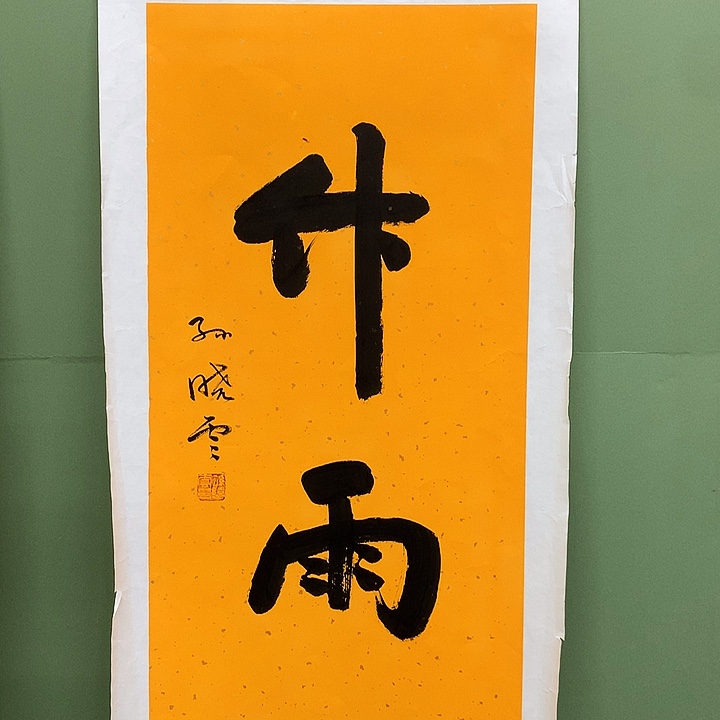 竹雨
孙晓雲